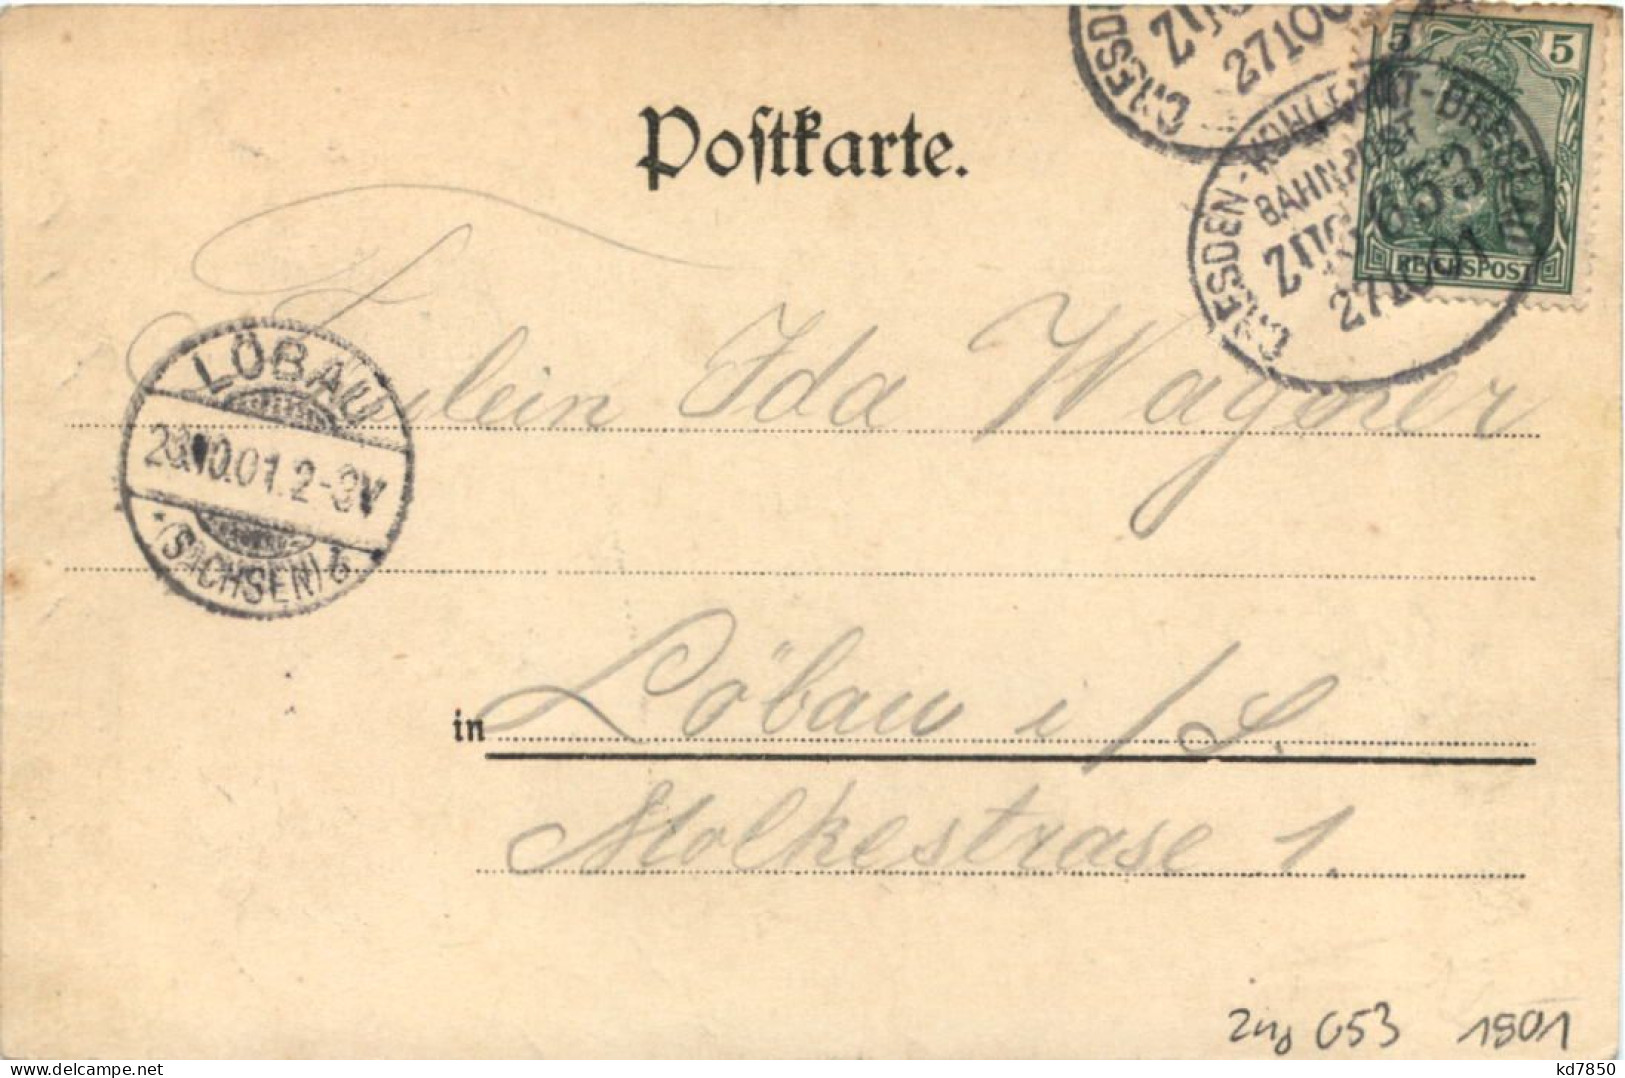 ZUG
27 10 0
5 5
DRESDEN-KOHLFURT-BRESLAU
BAHNPOST
ZUG 653
27 10 01
REICHSPOST
Postkarte.
Fräulein Ida Wagner
LÖBAU
28.10.01.2-3V
*(SACHSEN) b
in Löbau i/S.
Molkestrase 1.
Zug 653 1901
kd7850